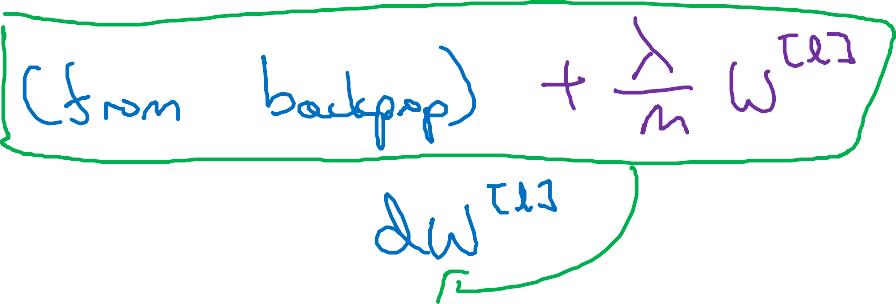 (from backprop) + λ/m W^[l]
dW^[l]